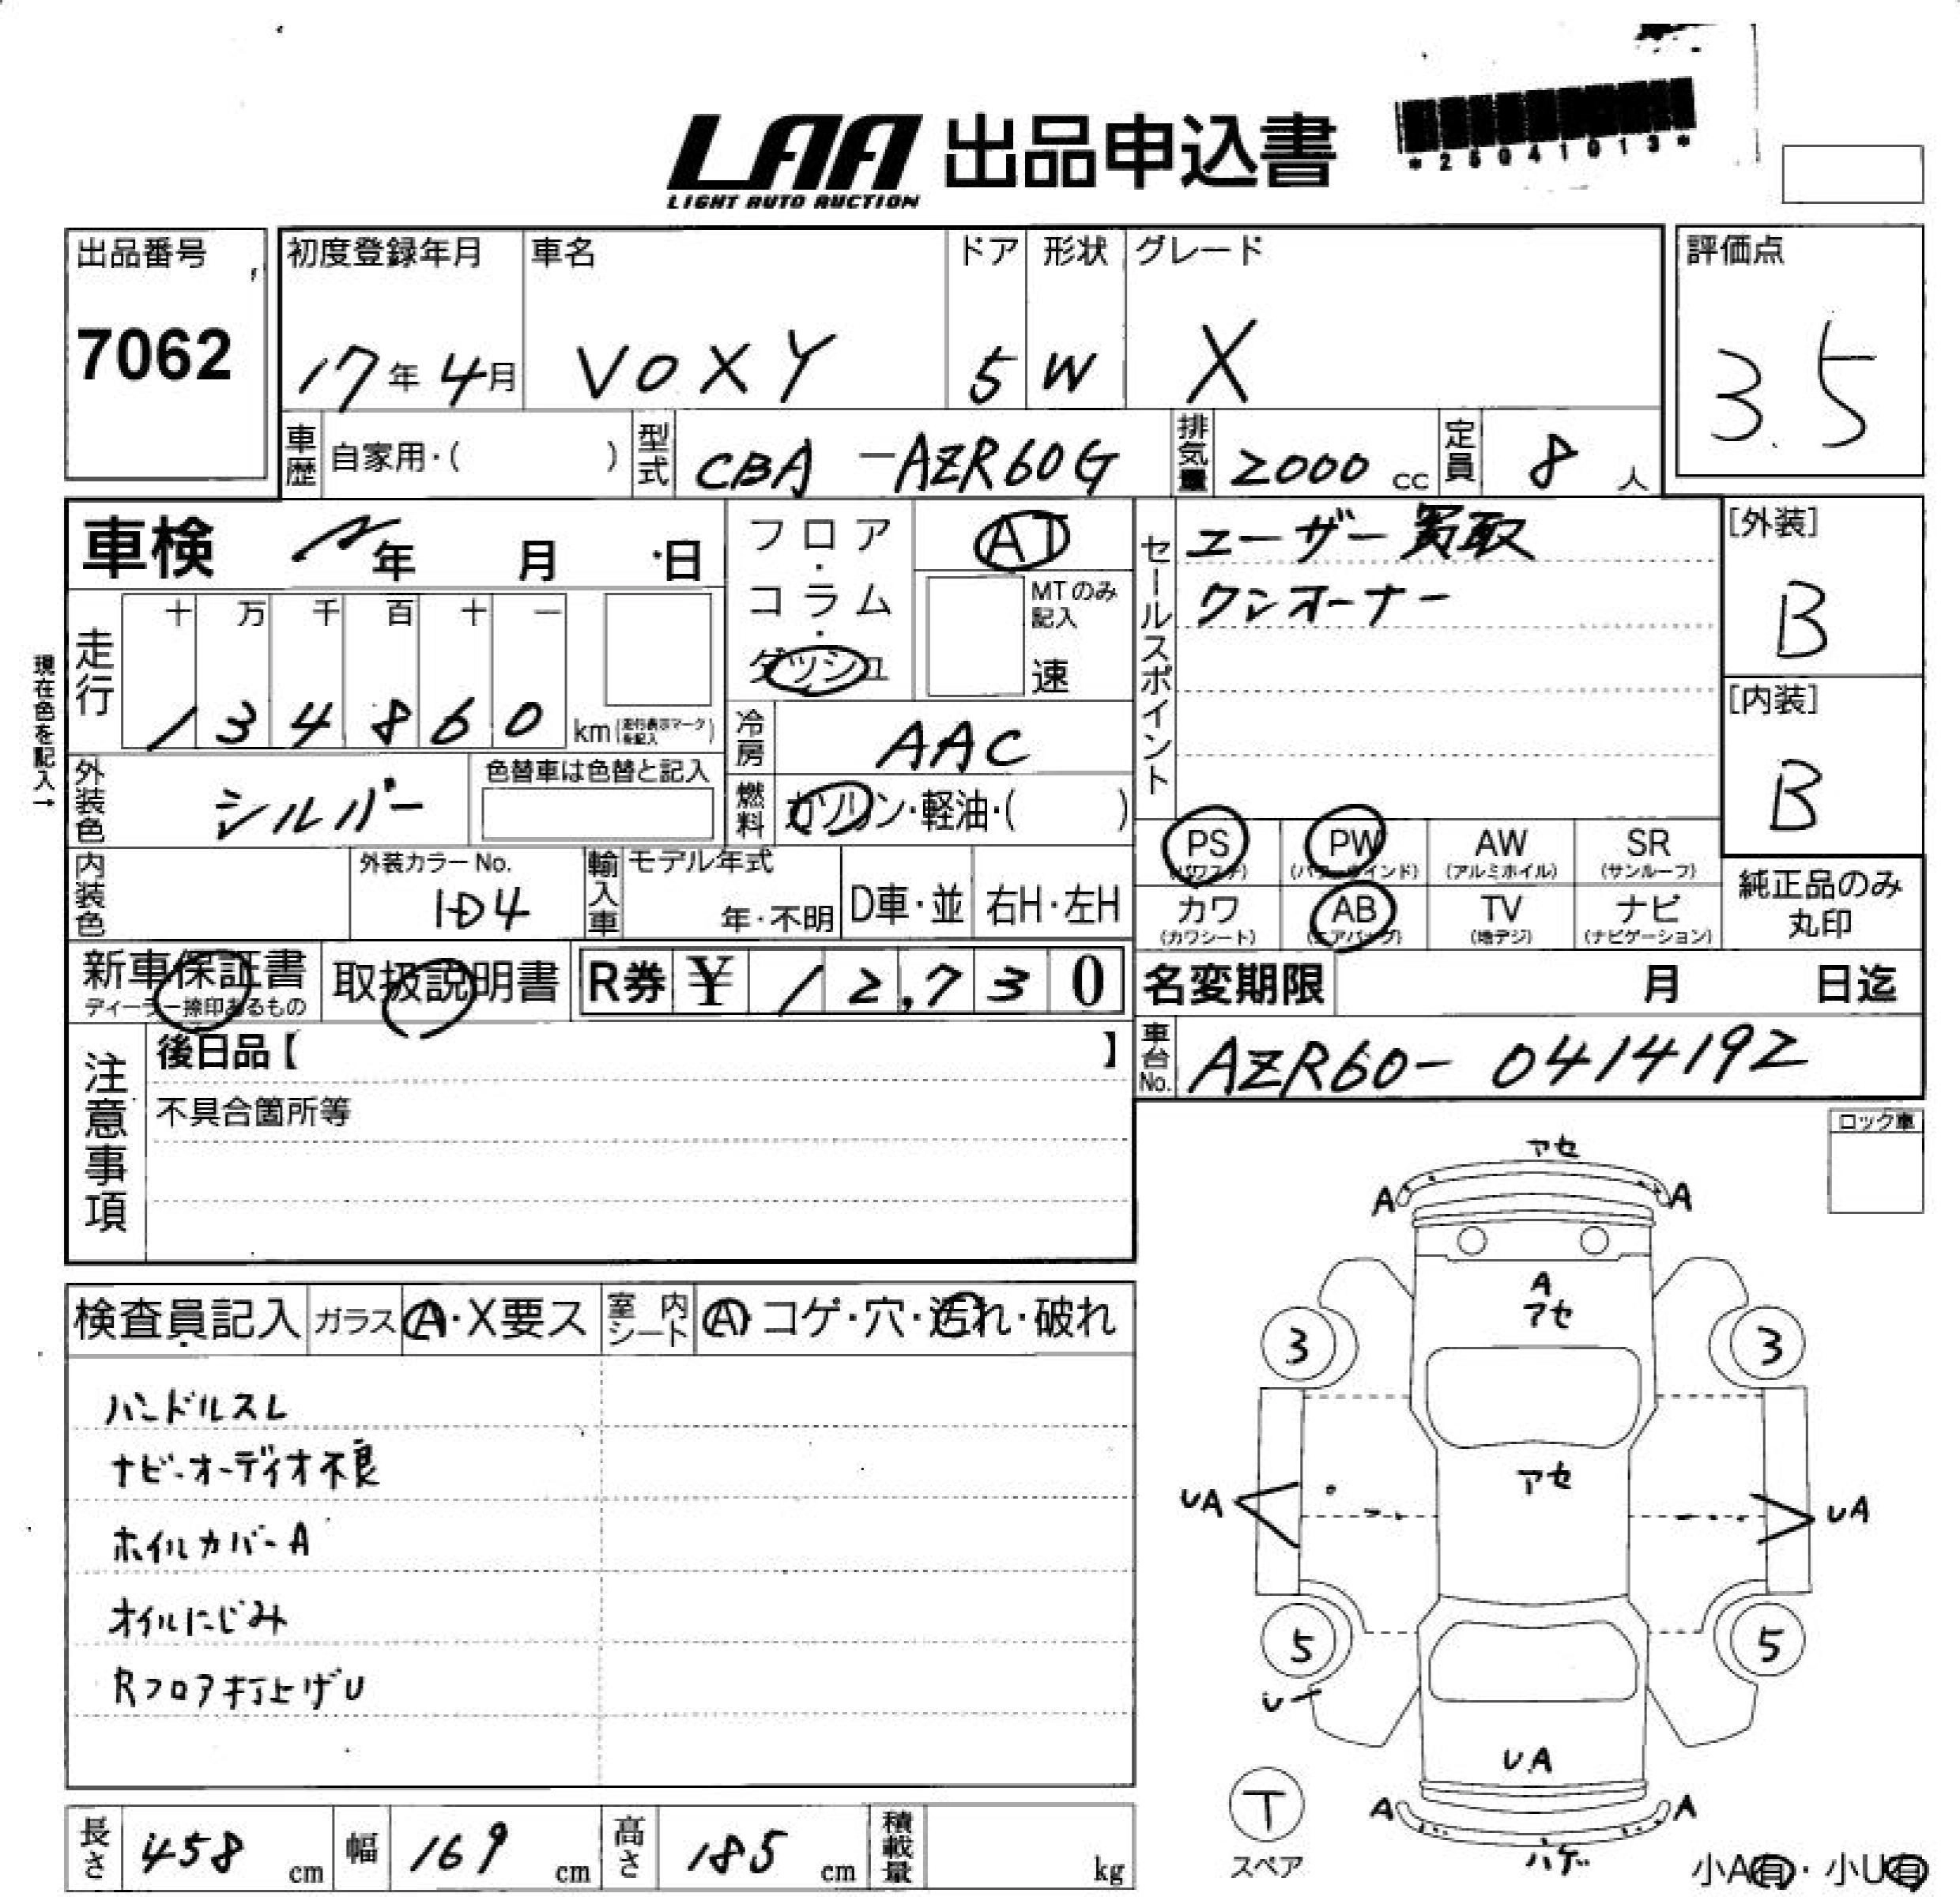 LAA 出品申込書
LIGHT AUTO AUCTION
*25041013*
出品番号
7062
初度登録年月
17年 4月
車名
VOXY
ドア
5
形状
W
グレード
X
評価点
3.5
車歴
自家用・( )
型式
CBA-AZR60G
排気量
2000 cc
定員
8 人
車検
年 月 日
フロア・コラム・ダッシュ
AT
MTのみ記入
速
セールスポイント
ユーザー買取
ワンオーナー
[外装]
B
[内装]
B
現在色を記入→
走行
十 万 千 百 十 一
1 3 4 8 6 0 km
(走行表示マーク後記入)
冷房
AAC
燃料
ガソリン・軽油・( )
外装色
シルバー
色替車は色替と記入
内装色
外装カラーNo.
1D4
輸入車
モデル年式
年・不明
D車・並
右H・左H
PS
(パワステ)
PW
(パワーウインド)
AW
(アルミホイル)
SR
(サンルーフ)
カワ
(カワシート)
AB
(エアバッグ)
TV
(地デジ)
ナビ
(ナビゲーション)
純正品のみ
丸印
新車保証書
ディーラー捺印あるもの
取扱説明書
R券 ¥ 12,730
名変期限
月 日迄
車台No.
AZR60-0414192
注意事項
後日品【 】
不具合箇所等
ロック車
検査員記入
ガラス
A・X要ス
室内シート
A・コゲ・穴・汚れ・破れ
ハンドルスレ
ナビ・オーディオ不良
ホイルカバーA
オイルにじみ
Rフロア打上げU
アセ
A
A
A
アセ
3
3
アセ
UA
UA
5
5
U
UA
T
スペア
A
A
ハゲ
小A有・小U有
長さ
458 cm
幅
169 cm
高さ
185 cm
積載量
kg